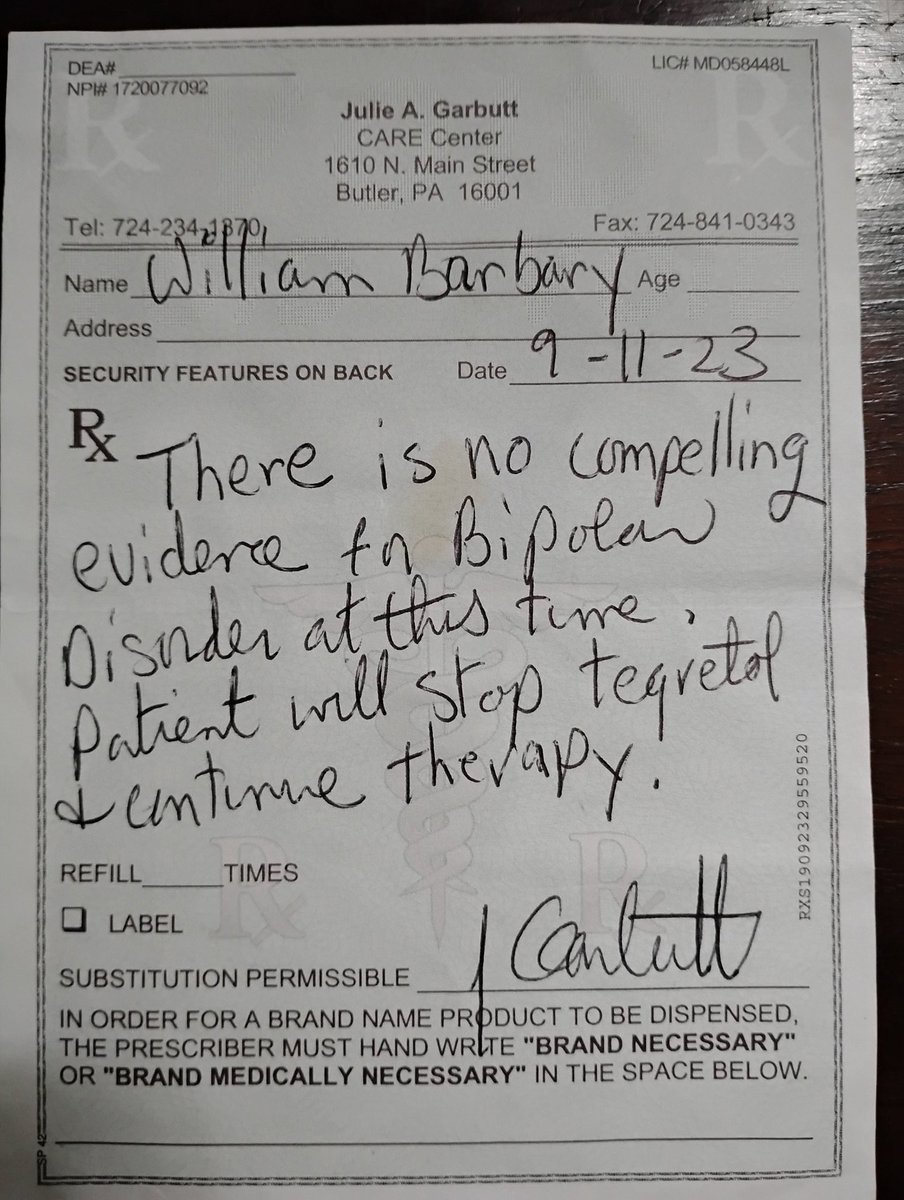 DEA#
LIC# MD058448L
NPI# 1720077092
Julie A. Garbutt
CARE Center
1610 N. Main Street
Butler, PA 16001
Tel: 724-234-1870
Fax: 724-841-0343
Name William Barbary Age
Address
SECURITY FEATURES ON BACK Date 9-11-23
Rx There is no compelling
evidence for Bipolar
Disorder at this time.
Patient will stop tegretol
& continue therapy.
REFILL TIMES
LABEL
SUBSTITUTION PERMISSIBLE J Garbutt
IN ORDER FOR A BRAND NAME PRODUCT TO BE DISPENSED,
THE PRESCRIBER MUST HAND WRITE "BRAND NECESSARY"
OR "BRAND MEDICALLY NECESSARY" IN THE SPACE BELOW.
RXS19092329559520
SP 42